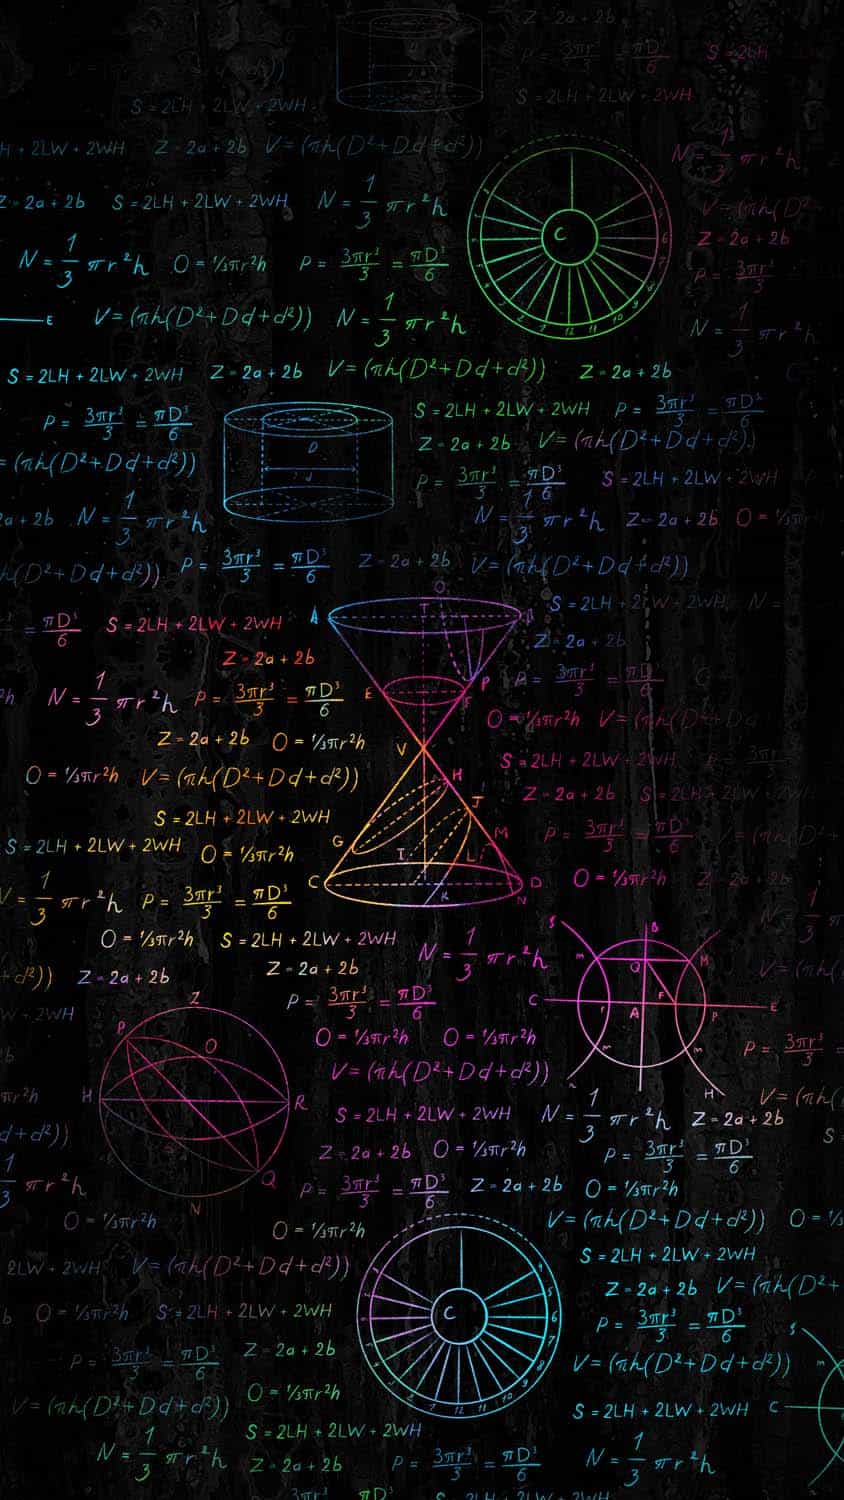 Z = 2a + 2b
P = 3πr³/3 = πD³/6 S = 2LH
S = 2LH + 2LW + 2WH S = 2LH + 2LW + 2WH
H + 2LW + 2WH Z = 2a + 2b V = (πh(D² + Dd + d²))
N = 1/3 πr²h
Z = 2a + 2b S = 2LH + 2LW + 2WH N = 1/3 πr²h V = (πh(D²
C
Z = 2a + 2b
N = 1/3 πr²h O = ⅓πr²h P = 3πr³/3 = πD³/6 P = 3πr³/3
12 11 10
E V = (πh(D² + Dd + d²)) N = 1/3 πr²h N = 1/3 πr²h
S = 2LH + 2LW + 2WH Z = 2a + 2b V = (πh(D² + Dd + d²)) Z = 2a + 2b
P = 3πr³/3 = πD³/6 S = 2LH + 2LW + 2WH P = 3πr³/3 = πD³/6
D Z = 2a + 2b V = (πh(D² + Dd + d²))
= (πh(D² + Dd + d²)) d P = 3πr³/3 = πD³/6 S = 2LH + 2LW + 2WH
2a + 2b N = 1/3 πr²h N = 1/3 πr²h Z = 2a + 2b O = ⅓πr
h(D² + Dd + d²)) P = 3πr³/3 = πD³/6 Z = 2a + 2b V = (πh(D² + Dd + d²))
O
A T S = 2LH + 2LW + 2WH N =
= πD³/6 S = 2LH + 2LW + 2WH Z = 2a + 2b
Z = 2a + 2b P P = 3πr³/3 = πD³/6
²h N = 1/3 πr²h P = 3πr³/3 = πD³/6 E F
O = ⅓πr²h V = (πh(D² + Dd
Z = 2a + 2b O = ⅓πr²h V S = 2LH + 2LW + 2WH
O = ⅓πr²h V = (πh(D² + Dd + d²)) H Z = 2a + 2b S = 2LH + 2LW + 2WH
S = 2LH + 2LW + 2WH J
G M P = 3πr³/3 = πD³/6
S = 2LH + 2LW + 2WH O = ⅓πr²h I L
C D O = ⅓πr²h Z = 2a + 2b
V = 1/3 πr²h P = 3πr³/3 = πD³/6 K N
O = ⅓πr²h S = 2LH + 2LW + 2WH N = 1/3 πr²h S B
+ d²)) Z = 2a + 2b Z = 2a + 2b m Q M
P = 3πr³/3 = πD³/6 C r A F P E
Z
P O O = ⅓πr²h O = ⅓πr²h m m P = 3πr³/3
V = (πh(D² + Dd + d²))
H R H V = (πh(D² + Dd
S = 2LH + 2LW + 2WH N = 1/3 πr²h Z = 2a + 2b
d + d²)) Z = 2a + 2b O = ⅓πr²h P = 3πr³/3 = πD³/6
1/3 πr²h Q P = 3πr³/3 = πD³/6 Z = 2a + 2b O = ⅓πr²h
N
O = ⅓πr²h O = ⅓πr²h V = (πh(D² + Dd + d²)) O = ⅓
2LW + 2WH V = (πh(D² + Dd + d²)) S = 2LH + 2LW + 2WH
Z = 2a + 2b V = (πh(D² +
b O = ⅓πr²h S = 2LH + 2LW + 2WH C P = 3πr³/3 = πD³/6
P = 3πr³/3 = πD³/6 Z = 2a + 2b V = (πh(D² + Dd + d²)) S m
O = ⅓πr²h
V = (πh(D² + Dd + d²)) 12 11 10 S = 2LH + 2LW + 2WH C
S = 2LH + 2LW + 2WH
N = 1/3 πr²h Z = 2a + 2b P = 3πr³/3 = πD³/6 N = 1/3 πr²h
3πr³ πD³ S = 2LH + 2LW + 2WH